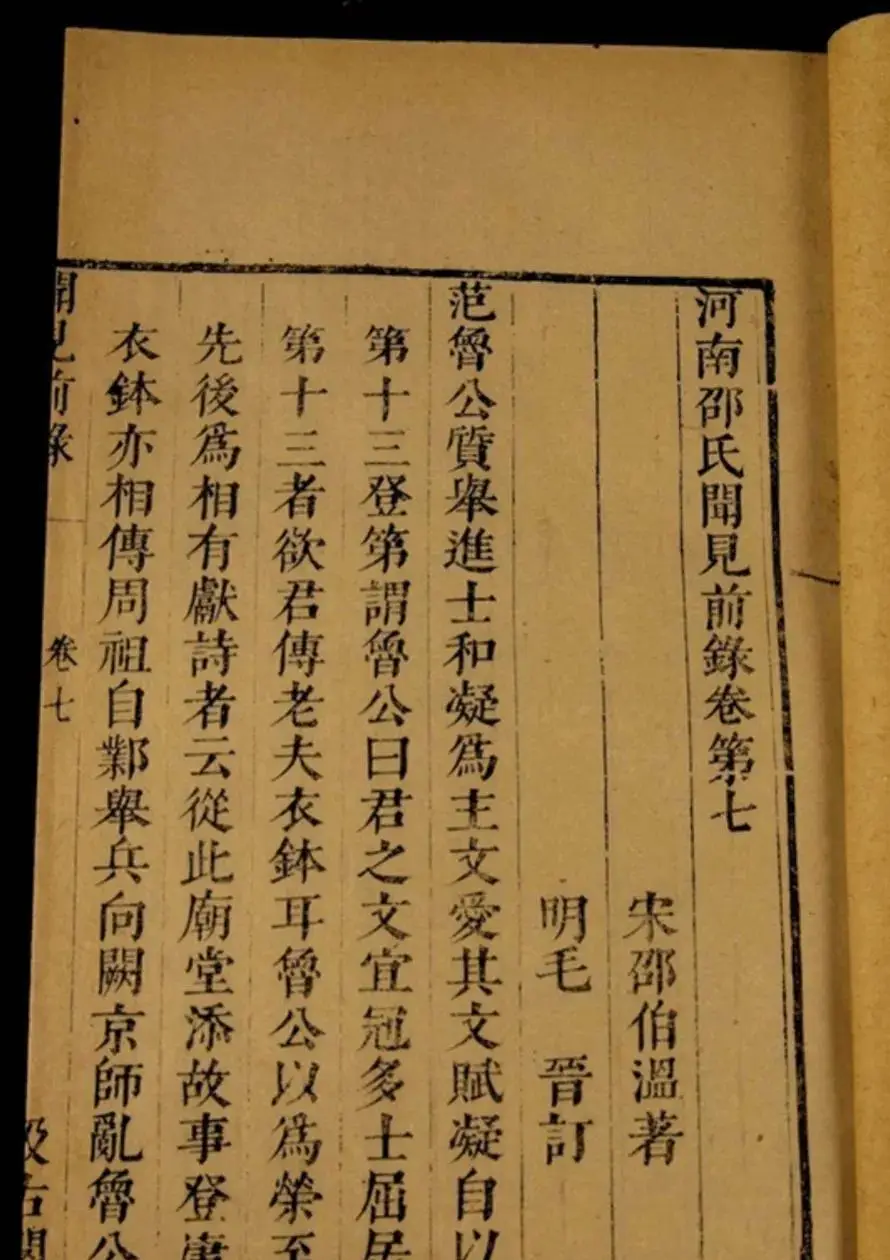 河南邵氏聞見前錄卷第七
宋邵伯溫著
明毛　晉訂
范魯公質舉進士和凝爲主文愛其文賦凝自以
第十三登第謂魯公曰君之文宜冠多士屈居
第十三者欲君傳老夫衣鉢耳魯公以爲榮至
先後爲相有獻詩者云從此廟堂添故事登庸
衣鉢亦相傳周祖自鄴舉兵向闕京師亂魯公
聞見前錄　卷七　汲古閣